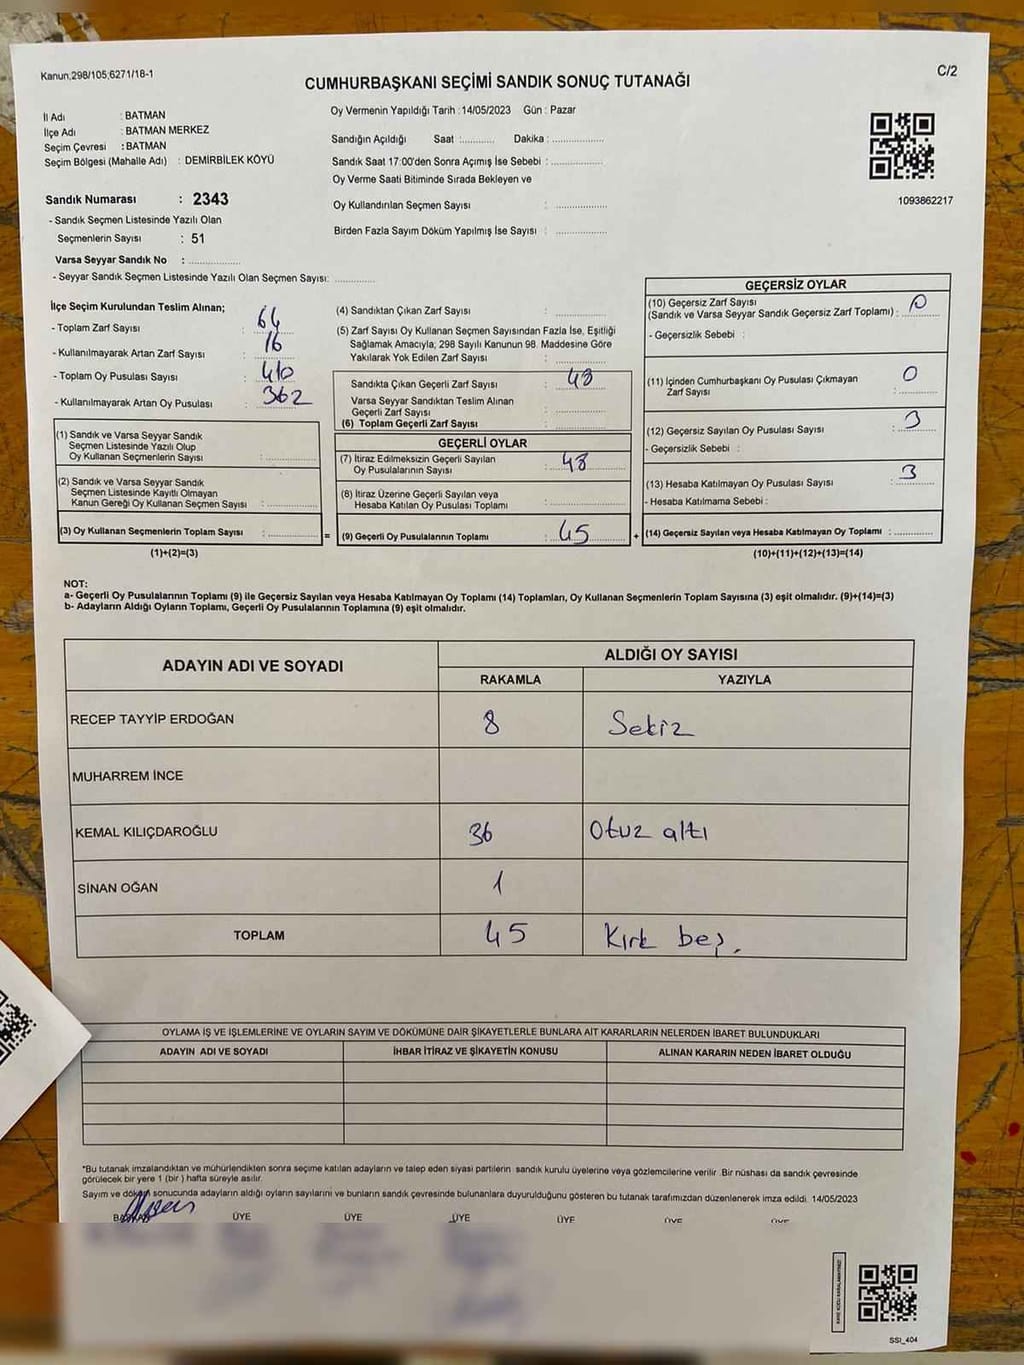 Kanun;298/105;6271/18-1
C/2
CUMHURBAŞKANI SEÇİMİ SANDIK SONUÇ TUTANAĞI
İl Adı : BATMAN
İlçe Adı : BATMAN MERKEZ
Seçim Çevresi : BATMAN
Seçim Bölgesi (Mahalle Adı) : DEMİRBİLEK KÖYÜ
Sandık Numarası : 2343
- Sandık Seçmen Listesinde Yazılı Olan
Seçmenlerin Sayısı : 51
Varsa Seyyar Sandık No : ..............
- Seyyar Sandık Seçmen Listesinde Yazılı Olan Seçmen Sayısı: ..............
Oy Vermenin Yapıldığı Tarih : 14/05/2023 Gün : Pazar
Sandığın Açıldığı Saat :............ Dakika : ..................
Sandık Saat 17:00'den Sonra Açımış İse Sebebi : ..................
Oy Verme Saati Bitiminde Sırada Bekleyen ve
Oy Kullandırılan Seçmen Sayısı : ..................
Birden Fazla Sayım Döküm Yapılmış İse Sayısı : ..................
1093862217
İlçe Seçim Kurulundan Teslim Alınan;
- Toplam Zarf Sayısı : 64
- Kullanılmayarak Artan Zarf Sayısı : 16
- Toplam Oy Pusulası Sayısı : 410
- Kullanılmayarak Artan Oy Pusulası : 362
(1) Sandık ve Varsa Seyyar Sandık
Seçmen Listesinde Yazılı Olup
Oy Kullanan Seçmenlerin Sayısı : ..............
(2) Sandık ve Varsa Seyyar Sandık
Seçmen Listesinde Kayıtlı Olmayan
Kanun Gereği Oy Kullanan Seçmen Sayısı : ..............
(3) Oy Kullanan Seçmenlerin Toplam Sayısı : ..............
(1)+(2)=(3)
=
(4) Sandıktan Çıkan Zarf Sayısı : ..............
(5) Zarf Sayısı Oy Kullanan Seçmen Sayısından Fazla İse, Eşitliği
Sağlamak Amacıyla; 298 Sayılı Kanunun 98. Maddesine Göre
Yakılarak Yok Edilen Zarf Sayısı : ..............
Sandıkta Çıkan Geçerli Zarf Sayısı : 48
Varsa Seyyar Sandıktan Teslim Alınan
Geçerli Zarf Sayısı : ..............
(6) Toplam Geçerli Zarf Sayısı : ..............
GEÇERLİ OYLAR
(7) İtiraz Edilmeksizin Geçerli Sayılan
Oy Pusulalarının Sayısı : 48
(8) İtiraz Üzerine Geçerli Sayılan veya
Hesaba Katılan Oy Pusulası Toplamı : ..............
(9) Geçerli Oy Pusulalarının Toplamı : 45
+
GEÇERSİZ OYLAR
(10) Geçersiz Zarf Sayısı
(Sandık ve Varsa Seyyar Sandık Geçersiz Zarf Toplamı) : 0
- Geçersizlik Sebebi :
(11) İçinden Cumhurbaşkanı Oy Pusulası Çıkmayan
Zarf Sayısı : 0
(12) Geçersiz Sayılan Oy Pusulası Sayısı : 3
- Geçersizlik Sebebi :
(13) Hesaba Katılmayan Oy Pusulası Sayısı : 3
- Hesaba Katılmama Sebebi :
(14) Geçersiz Sayılan veya Hesaba Katılmayan Oy Toplamı : ..............
(10)+(11)+(12)+(13)=(14)
NOT:
a- Geçerli Oy Pusulalarının Toplamı (9) ile Geçersiz Sayılan veya Hesaba Katılmayan Oy Toplamı (14) Toplamları, Oy Kullanan Seçmenlerin Toplam Sayısına (3) eşit olmalıdır. (9)+(14)=(3)
b- Adayların Aldığı Oyların Toplamı, Geçerli Oy Pusulalarının Toplamına (9) eşit olmalıdır.
ADAYIN ADI VE SOYADI
ALDIĞI OY SAYISI
RAKAMLA YAZIYLA
RECEP TAYYİP ERDOĞAN 8 Sekiz
MUHARREM İNCE
KEMAL KILIÇDAROĞLU 36 Otuz altı
SİNAN OĞAN 1
TOPLAM 45 Kırk beş.
OYLAMA İŞ VE İŞLEMLERİNE VE OYLARIN SAYIM VE DÖKÜMÜNE DAİR ŞİKAYETLERLE BUNLARA AİT KARARLARIN NELERDEN İBARET BULUNDUKLARI
ADAYIN ADI VE SOYADI İHBAR İTİRAZ VE ŞİKAYETİN KONUSU ALINAN KARARIN NEDEN İBARET OLDUĞU
*Bu tutanak imzalandıktan ve mühürlendikten sonra seçime katılan adayların ve talep eden siyasi partilerin sandık kurulu üyelerine veya gözlemcilerine verilir .Bir nüshası da sandık çevresinde
görülecek bir yere 1 (bir ) hafta süreyle asılır.
Sayım ve döküm sonucunda adayların aldığı oyların sayılarını ve bunların sandık çevresinde bulunanlara duyurulduğunu gösteren bu tutanak tarafımızdan düzenlenerek imza edildi. 14/05/2023
BAŞKAN ÜYE ÜYE ÜYE ÜYE ÜYE ÜYE
SSI_404